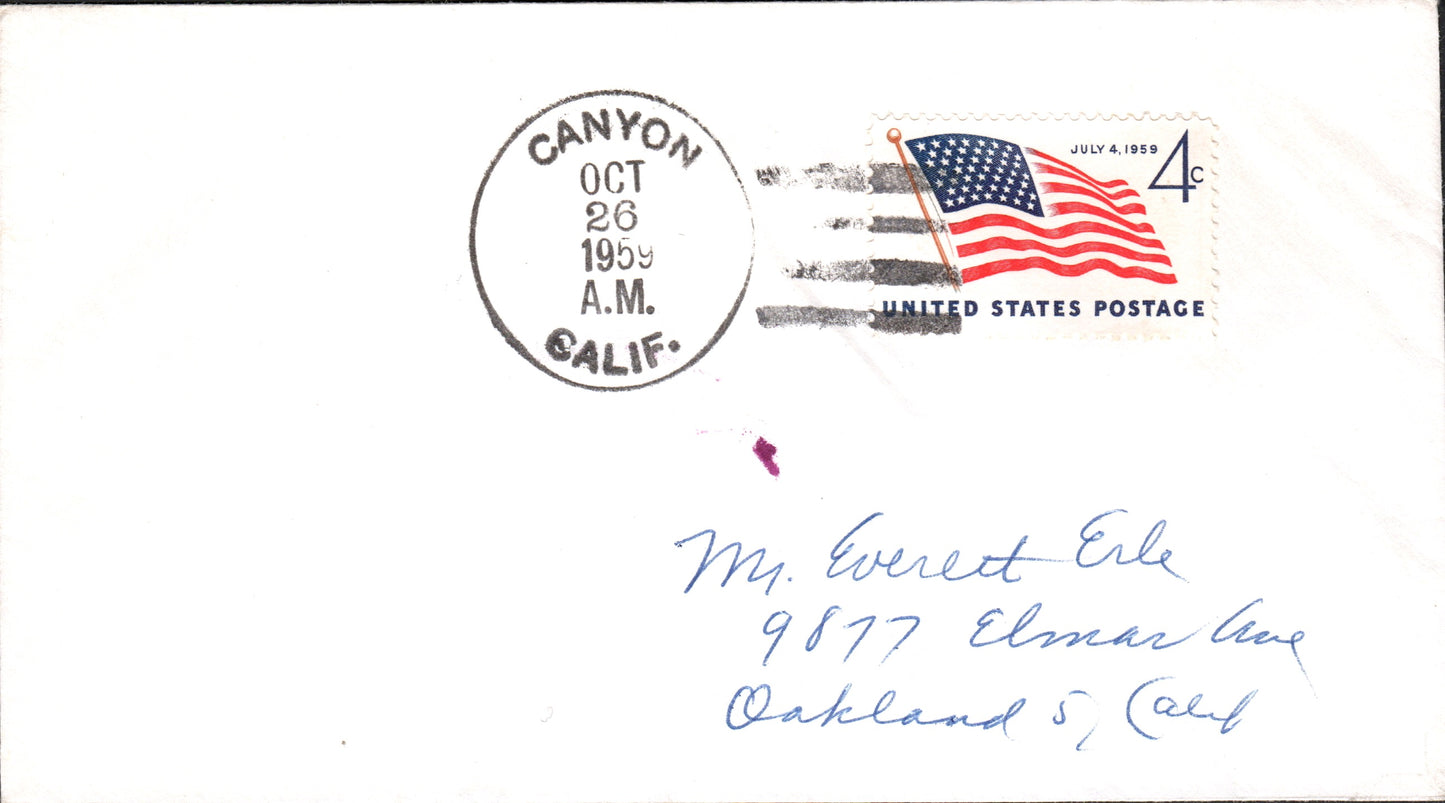 CANYON
OCT
26
1959
A.M.
CALIF.
JULY 4, 1959
4c
UNITED STATES POSTAGE
Mr. Everett Erle
9877 Elmar Ave
Oakland 5, Calif